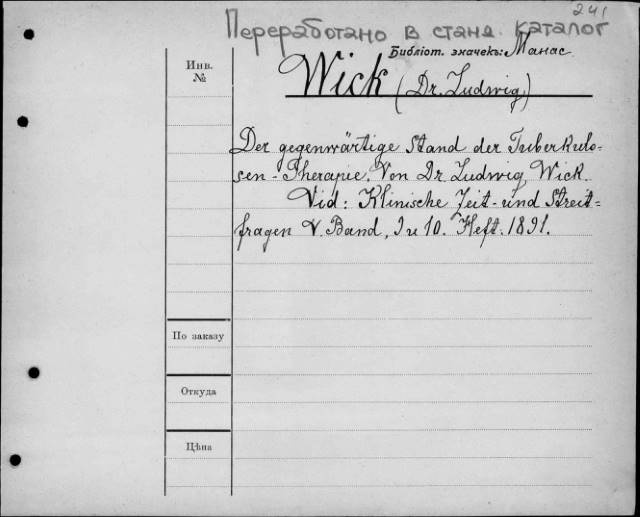 241
Переработано в станд. каталог
Библіот. значекъ: Манас
Инв.
№
Wick (Dr. Ludwig)
Der gegenwärtige Stand der Tuberkulo-
sen-Therapie. Von Dr. Ludwig Wick.
Vid: Klinische Zeit- und Streit-
fragen V. Band, 9 u 10. Heft. 1891.
По заказу
Откуда
Цѣна